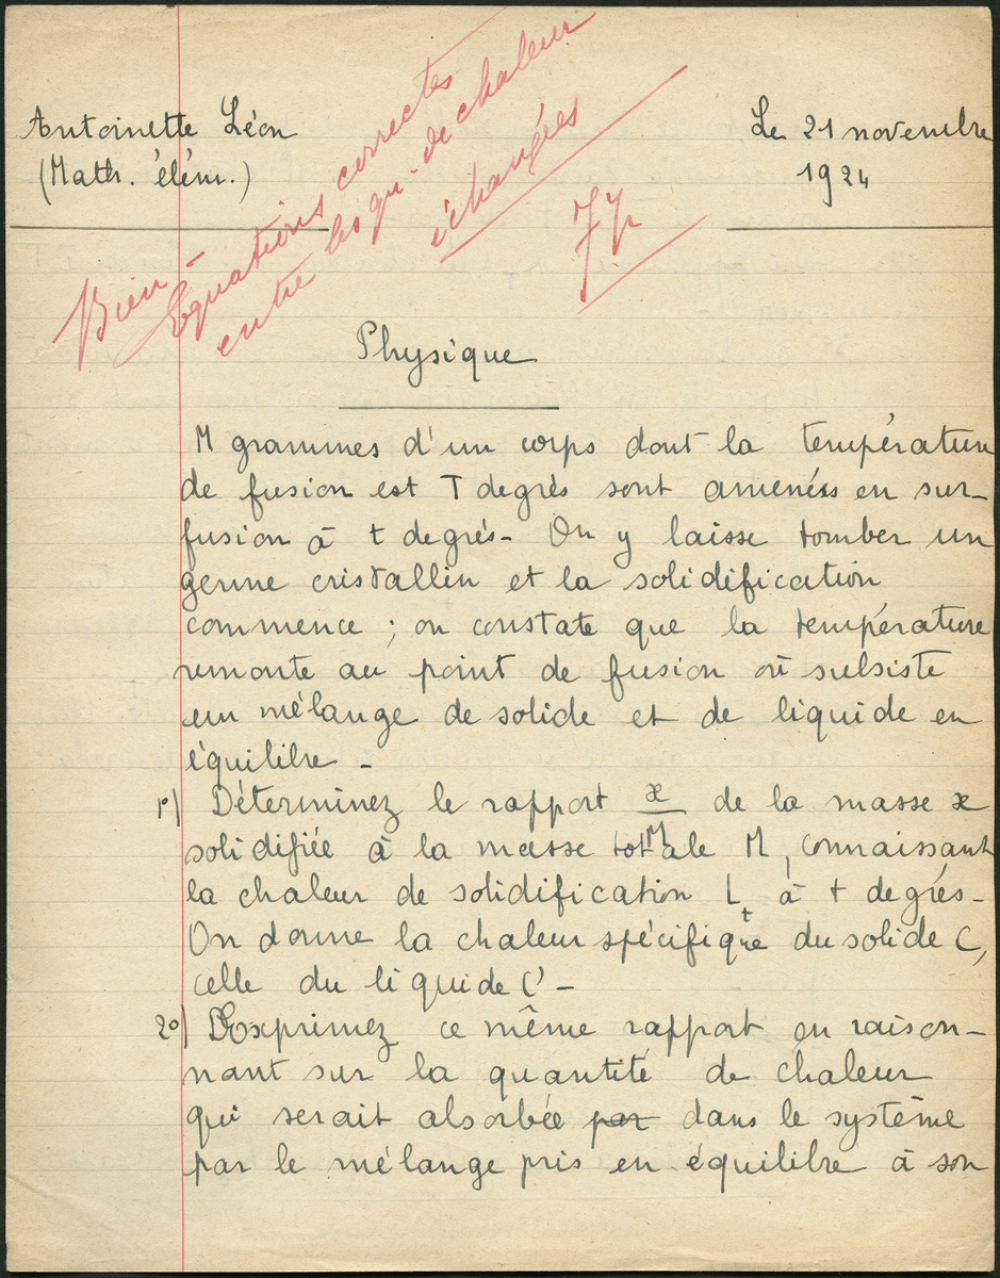 Antoinette Léon
(Math. élém.)
Le 21 novembre
1924
Bien -
Équations correctes
entre les qu. de chaleur
échangées
Physique
M grammes d'un corps dont la température
de fusion est T degrés sont amenés en sur-
fusion à t degrés - On y laisse tomber un
germe cristallin et la solidification
commence ; on constate que la température
remonte au point de fusion où subsiste
un mélange de solide et de liquide en
équilibre -
1º) Déterminez le rapport x/M de la masse x
solidifiée à la masse totale M, connaissant
la chaleur de solidification Lt à t degrés -
On donne la chaleur spécifique du solide C,
celle du liquide C' -
2º) Exprimez ce même rapport en raison-
nant sur la quantité de chaleur
qui serait absorbée par dans le système
par le mélange pris en équilibre à son